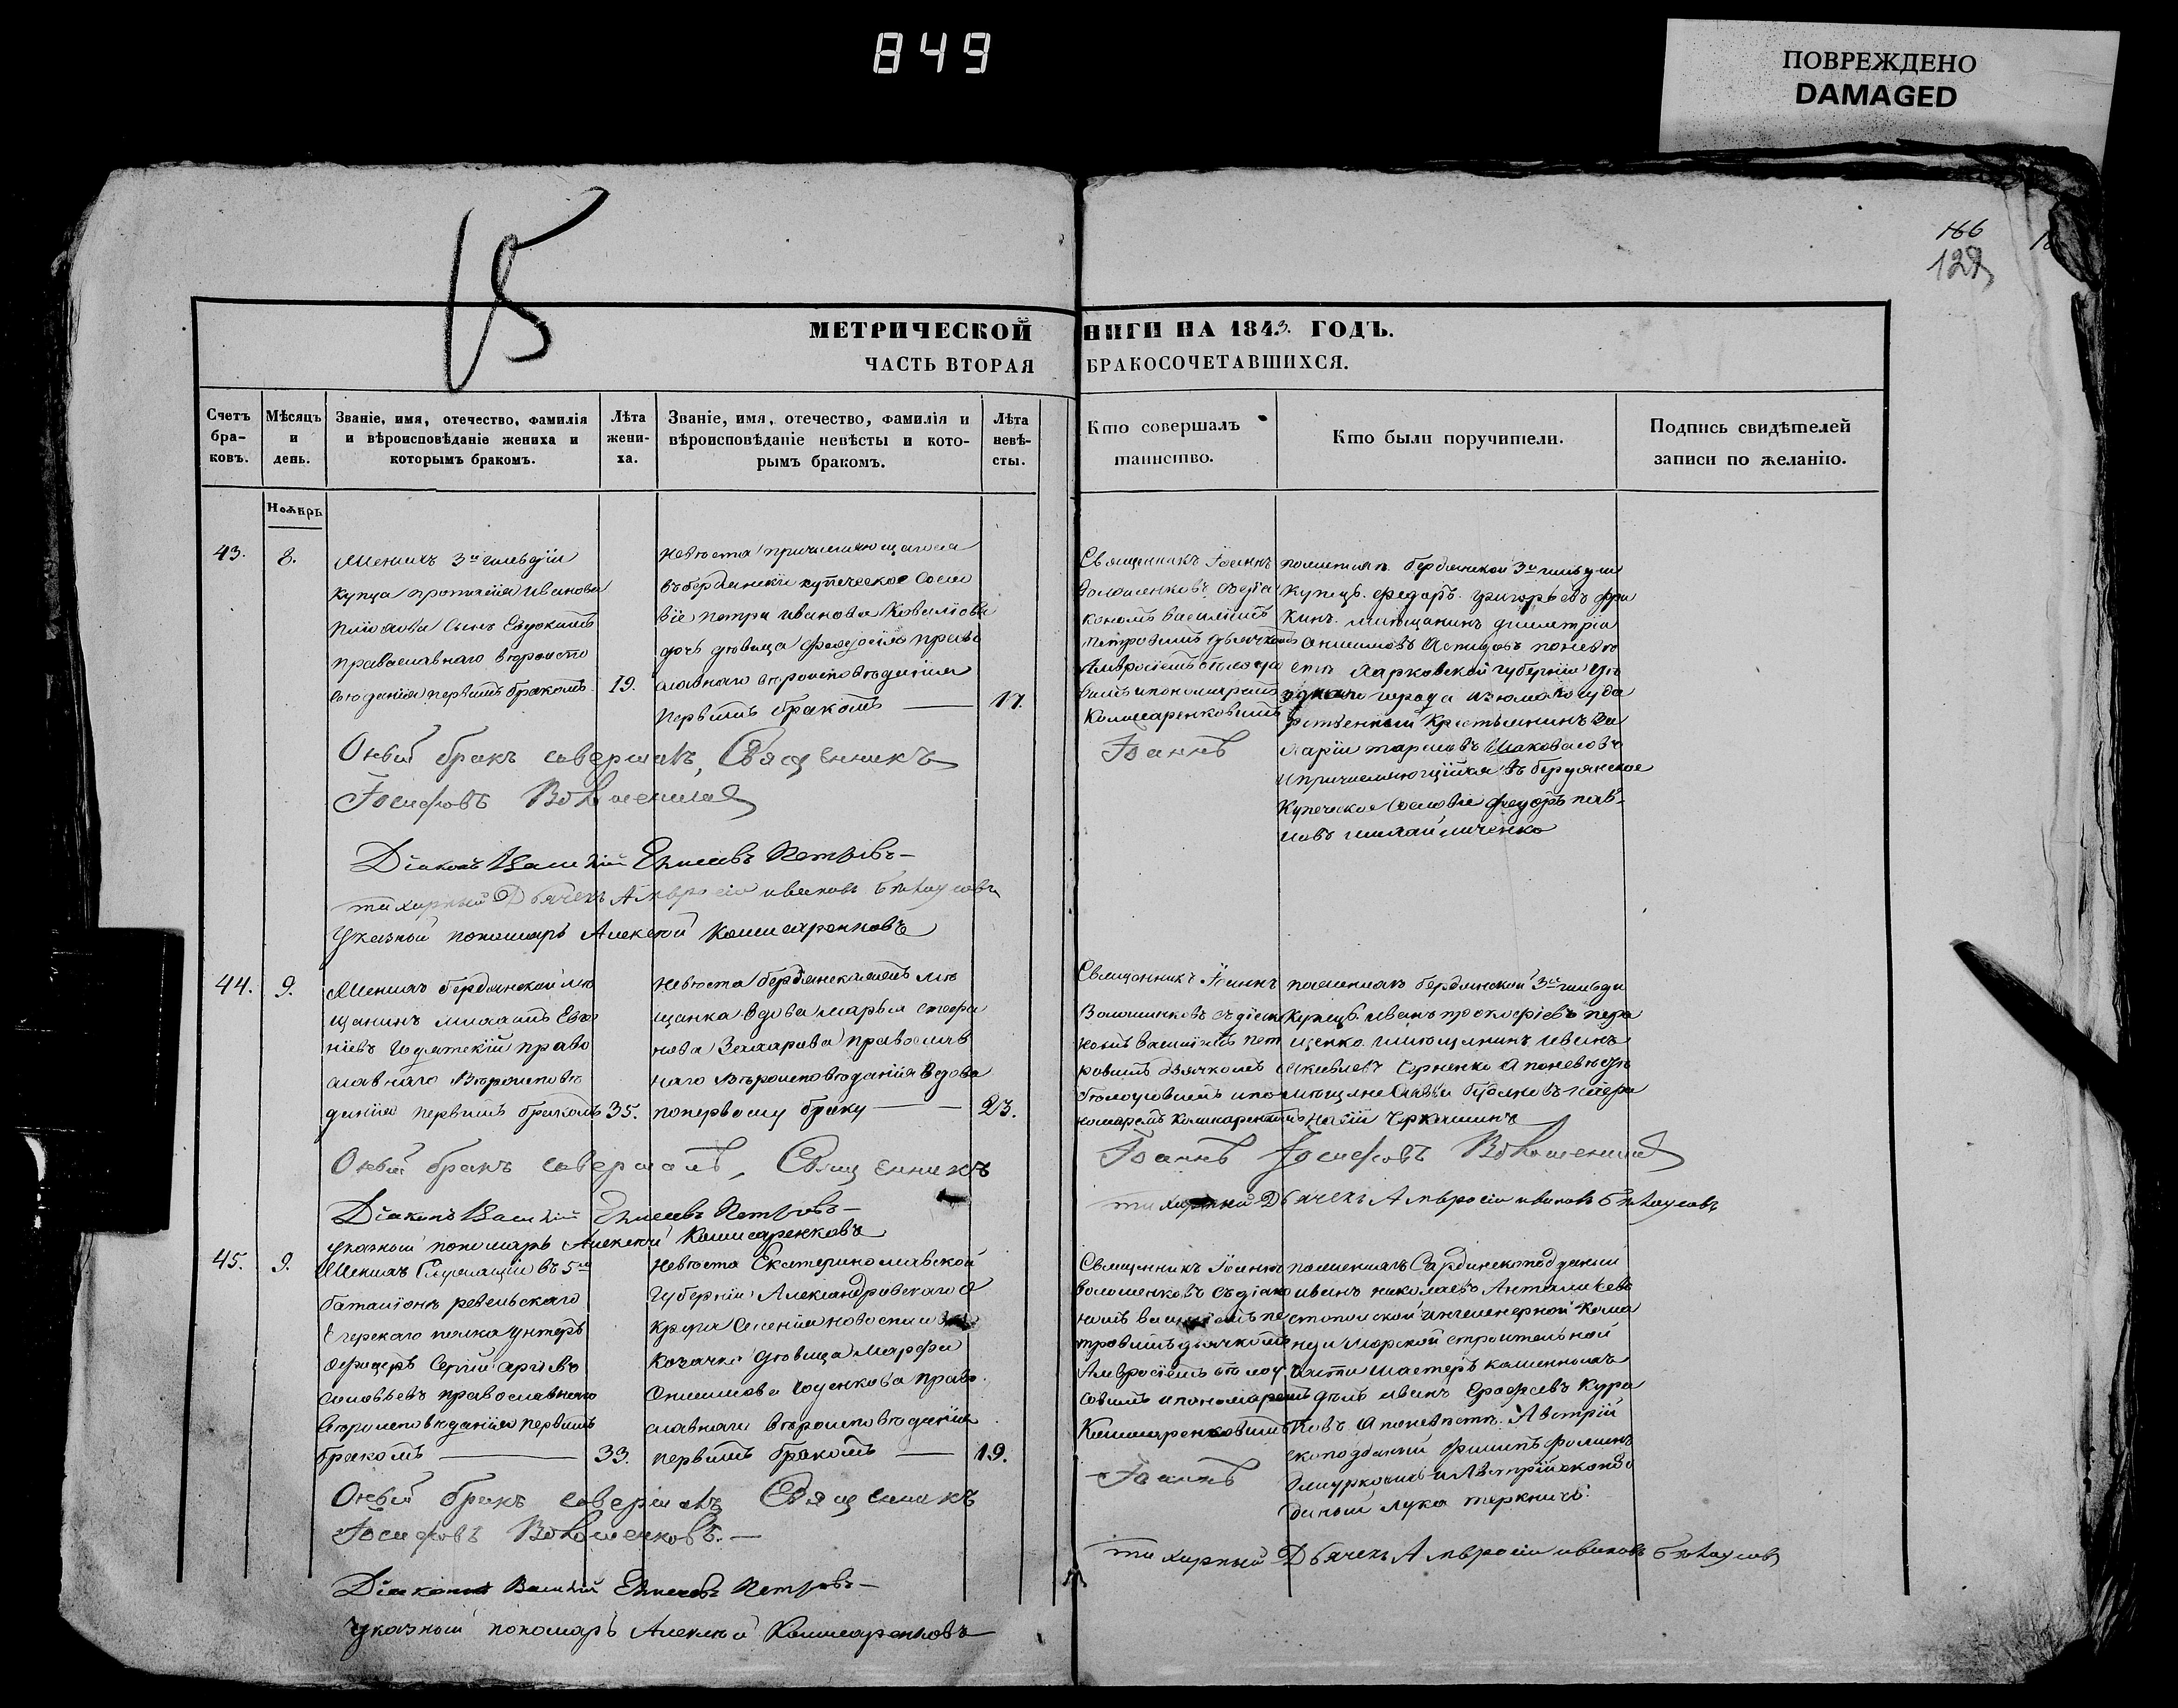 849
ПОВРЕЖДЕНО
DAMAGED
15
166
129
МЕТРИЧЕСКОЙ НИГИ НА 1843. ГОДЪ.
ЧАСТЬ ВТОРАЯ БРАКОСОЧЕТАВШИХСЯ.
Счетъ бра-ковъ.
Мѣсяцъ и день.
Званіе, имя, отечество, фамилія и вѣроисповѣданіе жениха и которымъ бракомъ.
Лѣта жени-ха.
Званіе, имя, отечество, фамилія и вѣроисповѣданіе невѣсты и кото-рымъ бракомъ.
Лѣта невѣ-сты.
Кто совершалъ таинство.
Кто были поручители.
Подпись свидѣтелей записи по желанію.
Ноябрь
43.
8.
Женихъ 3й гильдіи
купца Иванова
сынъ Евдокимъ
православнаго вѣроиспо
вѣданія первымъ бракомъ
19.
Невѣста причисляющагося
въ бердянскіи купеческое сосло
віе петра иванова Ковалиова
дочь дѣвица Феодосія право
славнаго вѣроисповѣданія
первымъ бракомъ
17.
Священникъ Іоаннъ
Волошенковъ съ діа
кономъ василіемъ
петровымъ дьячкомъ
Амвросіемъ бѣлоусо
вымъ и пономаремъ
Комисаренковымъ
по женихѣ бердянской 3й гильдіи
купецъ Федоръ Григорьевъ
мѣщанинъ димитріи
Онисимовъ по невѣ
стѣ Харковской губерніи
города изюма госуда
рственный крестьянинъ За
харіи тарасовъ Шаповаловъ
и причисляющійся въ бердянское
купеческое сословіе федоръ пав-
ловъ михайличенко
Оный бракъ совершалъ, Священникъ
Іоаннъ
Іосифовъ Волошенковъ
Діаконъ Василій Елисеевъ Петровъ
Дьячекъ Амвросій ивановъ бѣлоусовъ
Указный пономарь Алексѣй Комисаренковъ
44.
9.
Женихъ бердянской мѣ
щанинъ михаилъ Евѳ
право
славнаго вѣроисповѣ
данія первымъ бракомъ
35.
Невѣста бердянскаямѣ
щанка вдова марья стефа
нова Захарова православ
наго вѣроисповѣданія вдова
по первому браку
23.
Священникъ Іоаннъ
Волошенковъ съ діако
номъ василіемъ пет
ровымъ дьячкомъ
бѣлоусовымъ и по
номаремъ Комисаренковымъ
по женихѣ бердянской 3й гильди
купецъ иванъ прокофіевъ
мѣщанинъ иванъ
а по невѣстѣ
Черкашинъ
Оный бракъ совершалъ, Священникъ
Іоаннъ Іосифовъ Волошенковъ
Діаконъ Василій Елисеевъ Петровъ
Дьячекъ Амвросій ивановъ бѣлоусовъ
указный пономарь Алексѣй Комисаренковъ
45.
9.
Женихъ Служащій въ 5мъ
баталіонѣ ревельскаго
Егерскаго полка унтеръ
офицеръ Сергій
Соловьевъ православнаго
вѣроисповѣданія первымъ
бракомъ
33.
Невѣста Екатеринославской
Губерніи Александровскаго о
круга селенія новоспасов
козачка дѣвица марфа
Онисимова право
славнаго вѣроисповѣданія
первымъ бракомъ
19.
Священникъ Іоаннъ
волошенковъ съ діако
номъ василіемъ пе
тровымъ дьячкомъ
Амвросіемъ бѣлоу
совымъ и пономаремъ
Комисаренковымъ
по женихѣ Сардинскоподданый
иванъ николаевъ
инженерной кома
нды морской строительной
части мастеръ каменныхъ
дѣлъ иванъ Ерофеевъ Кура
ковъ а по невѣстѣ Австрій
скоподаный филипъ
и Австрійскопод
даный лука
Оный бракъ совершалъ, Священникъ
Іоаннъ
Іосифовъ Волошенковъ.
Дьячекъ Амвросій ивановъ бѣлоусовъ
Діаконъ Василій Елисеевъ Петровъ
Указный пономарь Алексѣй Комисаренковъ